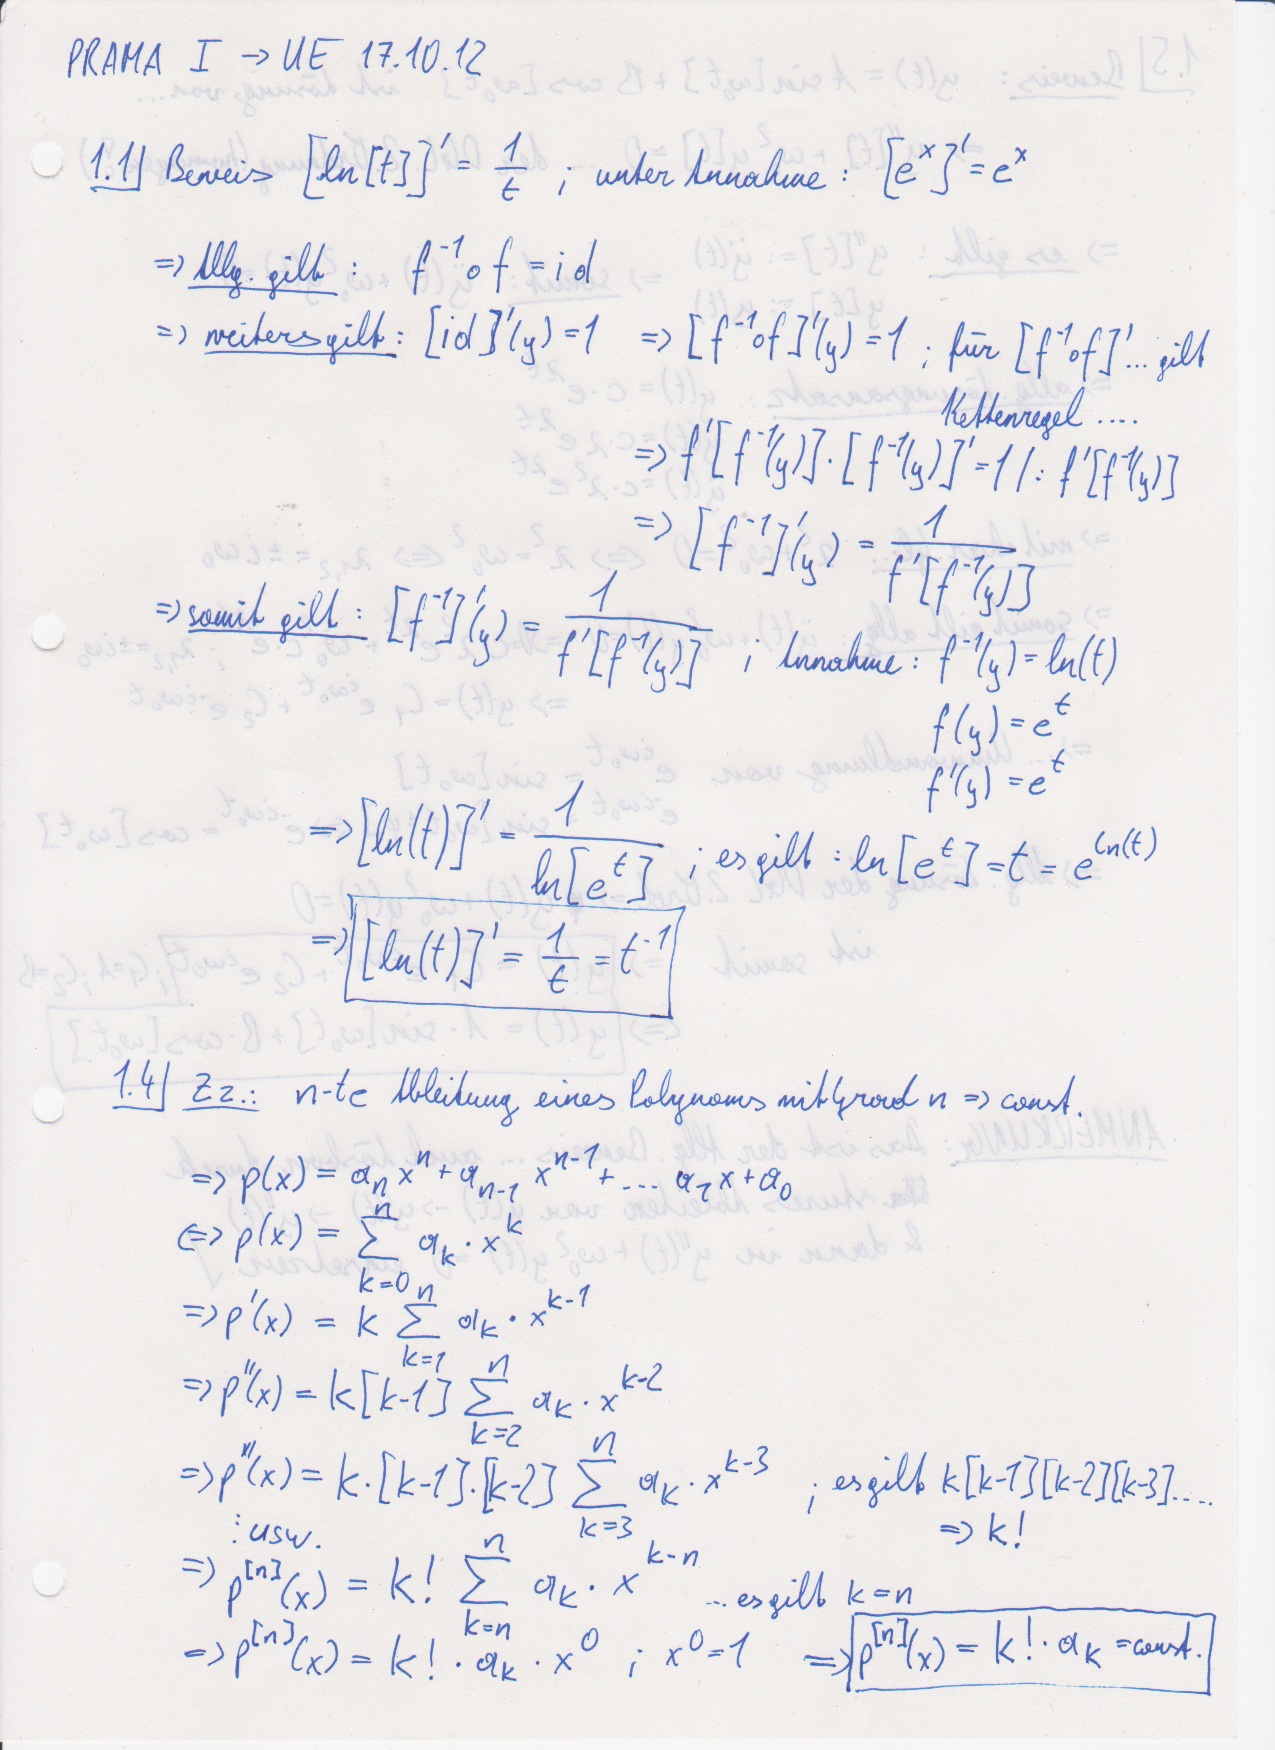 PRAMA I → UE 17.10.12
1.1 Beweis [ln[t]]' = 1/t ; unter Annahme: [e^x]' = e^x
=> Allg. gilt: f^-1 ∘ f = id
=> weiters gilt: [id]'(y) = 1 => [f^-1∘f]'(y) = 1 ; für [f^-1∘f]' ... gilt
Kettenregel ....
=> f'[f^-1(y)]·[f^-1(y)]' = 1 /: f'[f^-1(y)]
=> [f^-1]'(y) = 1/f'[f^-1(y)]
=> somit gilt: [f^-1]'(y) = 1/f'[f^-1(y)] ; Annahme: f^-1(y) = ln(t)
f(y) = e^t
f'(y) = e^t
=> [ln(t)]' = 1/ln[e^t] ; es gilt: ln[e^t] = t = e^ln(t)
=> [ln(t)]' = 1/t = t^-1
1.4 Zz.: n-te Ableitung eines Polynoms mit Grad n => const.
=> p(x) = a_n x^n + a_n-1 x^n-1 + ... a_1 x + a_0
<=> p(x) = ∑_{k=0}^{n} a_k · x^k
=> p'(x) = k ∑_{k=1}^{n} a_k · x^{k-1}
=> p''(x) = k[k-1] ∑_{k=2}^{n} a_k · x^{k-2}
=> p'''(x) = k·[k-1]·[k-2] ∑_{k=3}^{n} a_k · x^{k-3} ; es gilt k[k-1][k-2][k-3]....
⋮ usw. => k!
=> p^[n](x) = k! ∑_{k=n}^{n} a_k · x^{k-n} ... es gilt k = n
=> p^[n](x) = k! · a_k · x^0 ; x^0 = 1 => p^[n](x) = k! · a_k = const.